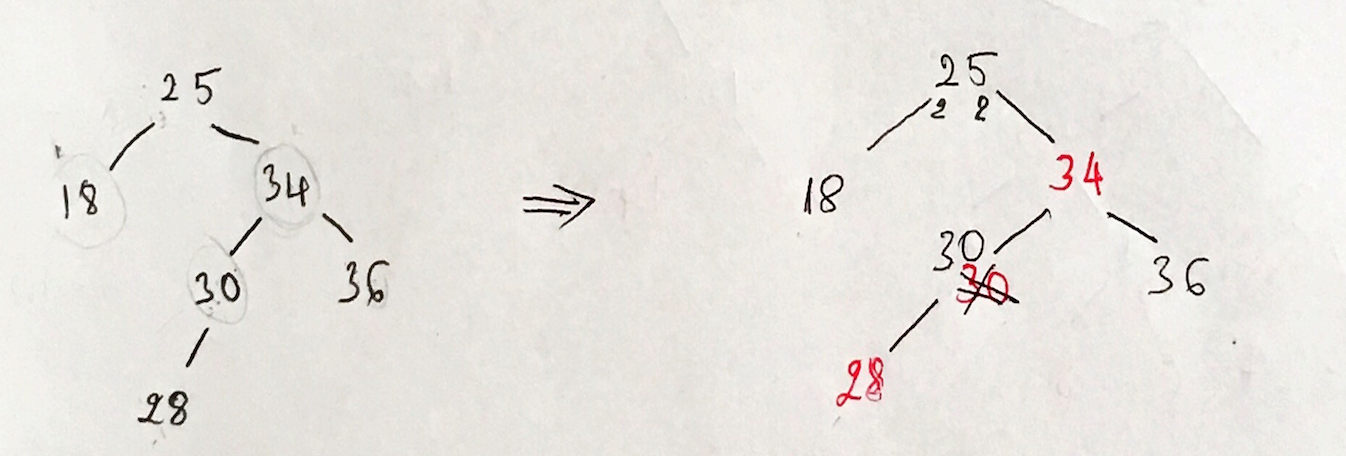 25
18 34
30 36
28
⇒
25
2 2
18 34
30
30
36
28